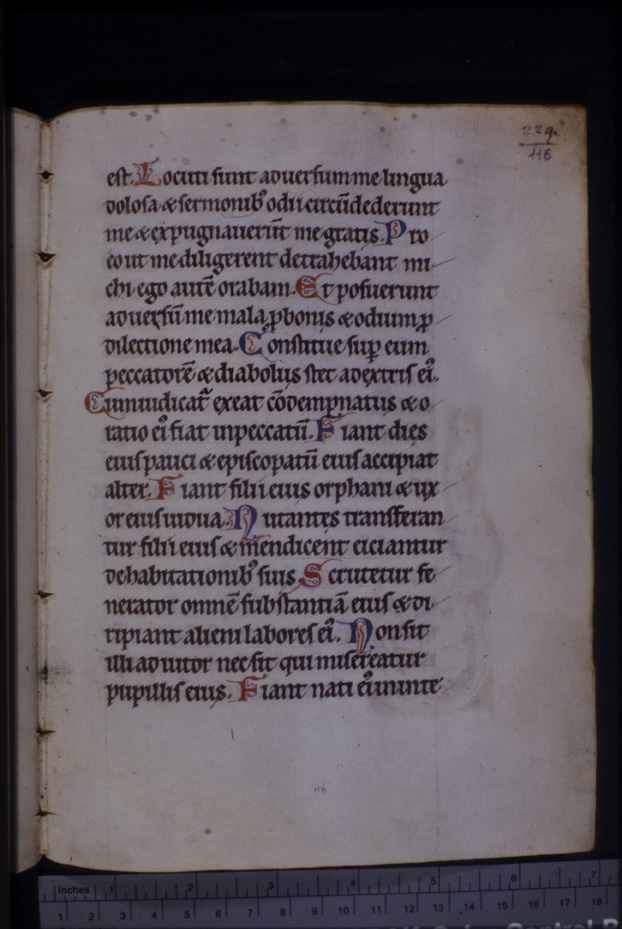 229.
116
est. Locuti sunt adversum me lingua
dolosa & sermonibꝰ odii circūdederunt
me & expugnauerūt me gratis. Pro
eo ut me diligerent detrahebant mi
chi ego autē orabam. Et posuerunt
aduersū me mala ꝓ bonis & odium ꝓ
dilectione mea. Constitue sup̄ eum
peccatorē & diabolus stet a dextris eiꝰ.
Cum iudicat᷑ exeat cōdempnatus & o
ratio eiꝰ fiat in peccatū. Fiant dies
eius pauci & episcopatū eius accipiat
alter. Fiant filii eius orphani & ux
or eius uidua. Nutantes transferan
tur filii eius & mendicent eiciantur
de habitationibꝰ suis. Scrutetur fe
nerator omnē substantiā eius & di
ripiant alieni labores eiꝰ. Non sit
illi adiutor nec sit qui misereatur
pupillis eius. Fiant nati eiꝰ in inte
116
Inches 1 2 3 4 5 6 7
1 2 3 4 5 6 7 8 9 10 11 12 13 14 15 16 17 18